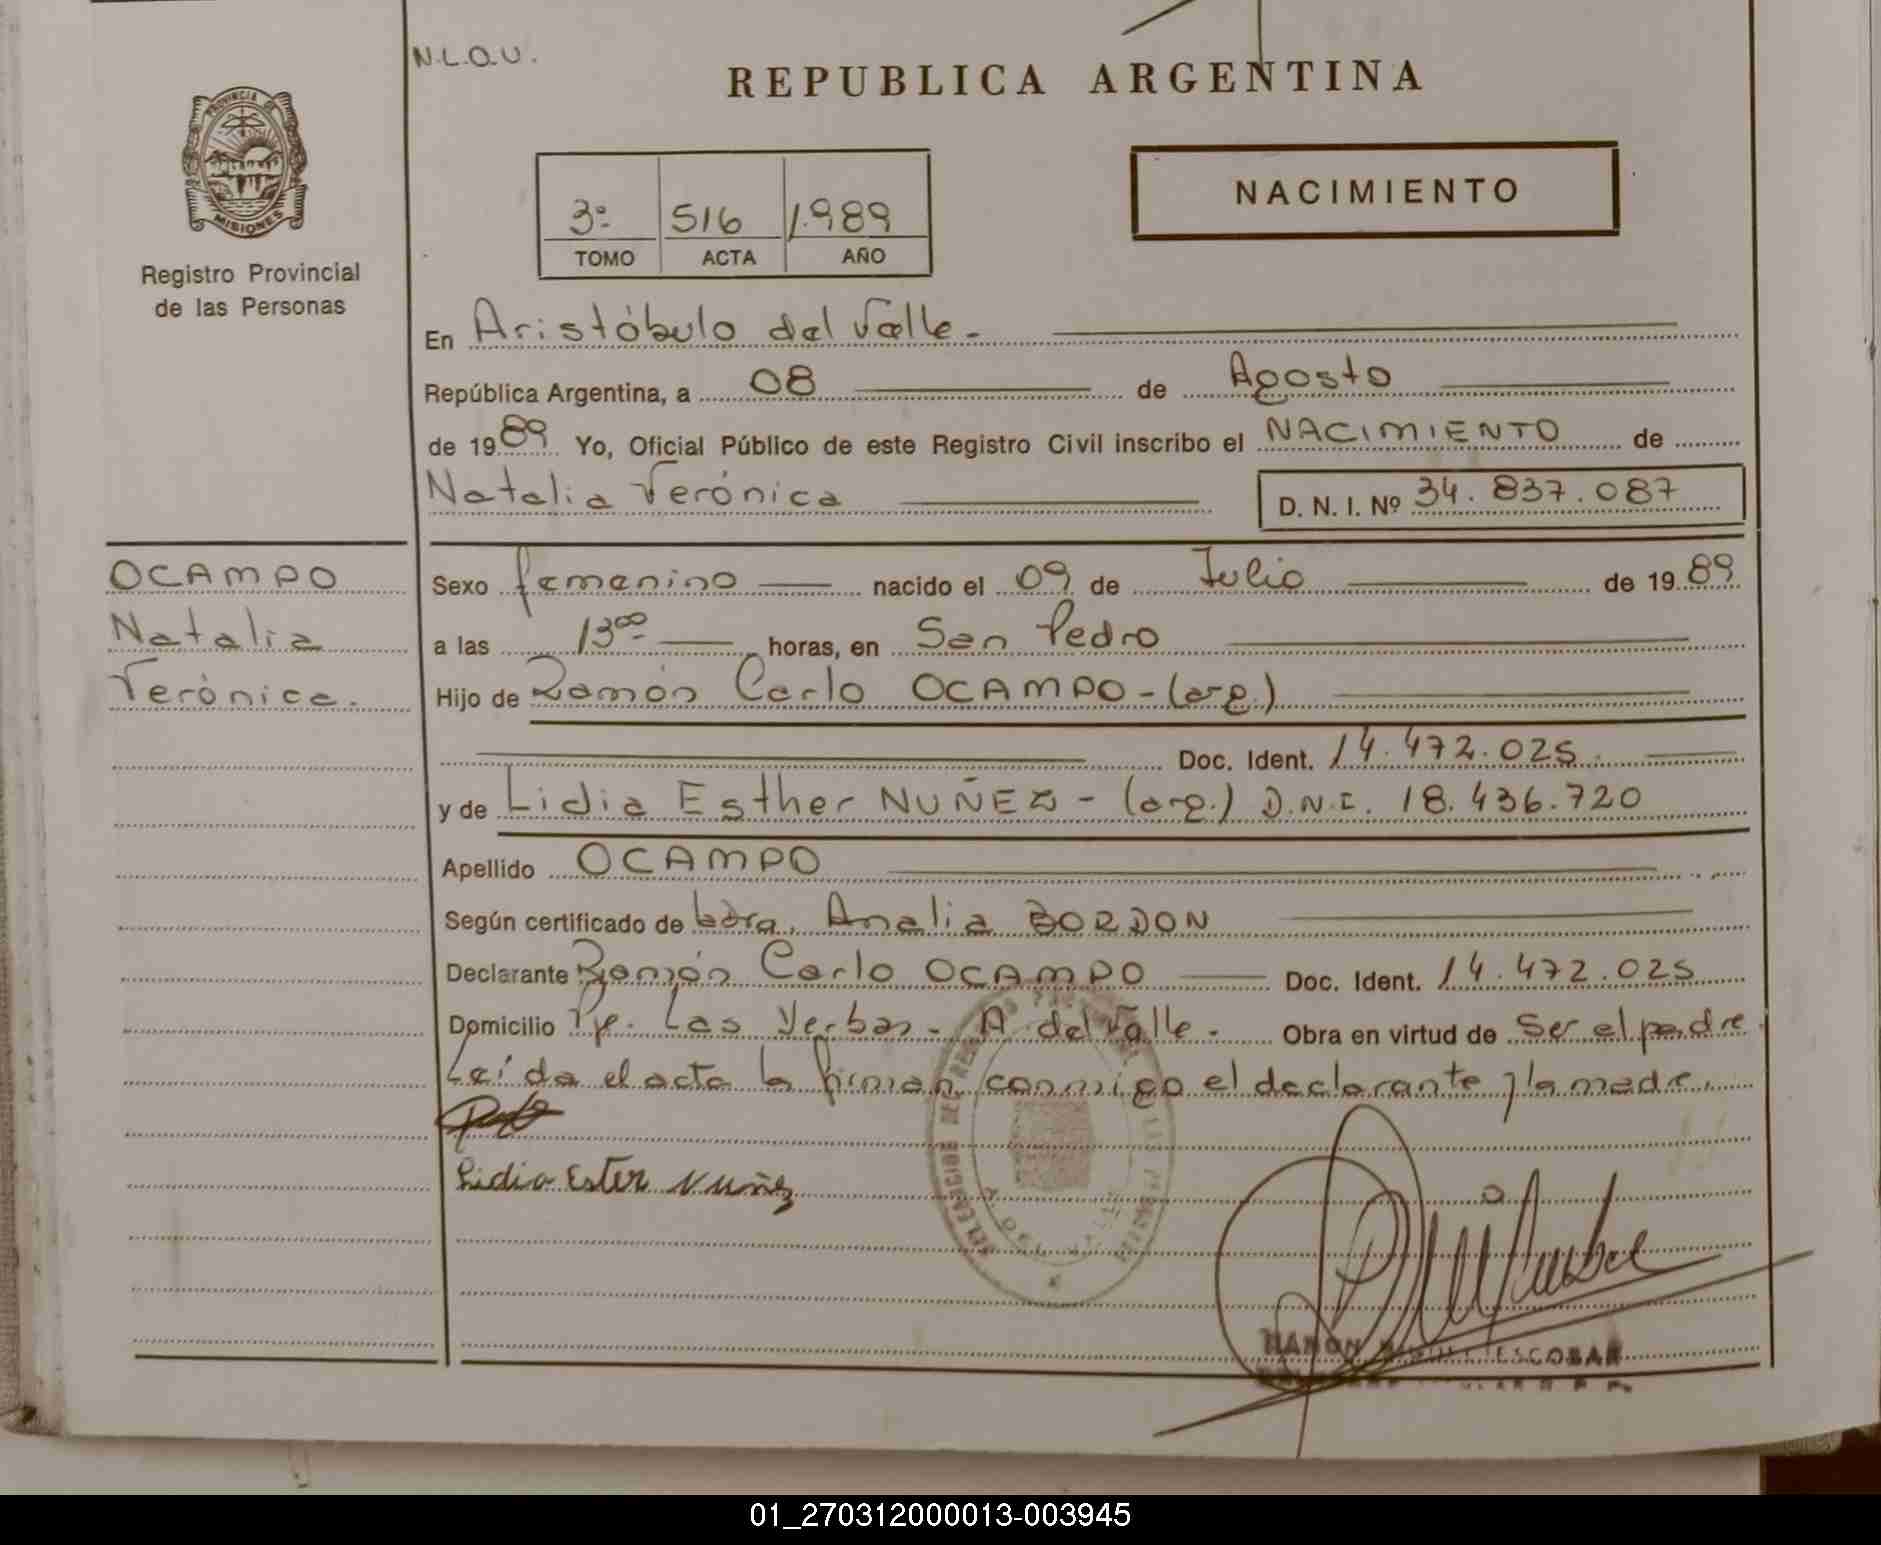 N.L.O.U.
REPUBLICA ARGENTINA
PROVINCIA DE
MISIONES
Registro Provincial
de las Personas
NACIMIENTO
3º 516 1.989
TOMO ACTA AÑO
En Aristóbulo del Valle.
República Argentina, a 08 de Agosto
de 1989 Yo, Oficial Público de este Registro Civil inscribo el NACIMIENTO de
Natalia Verónica D. N. I. Nº 34.837.087
OCAMPO
Natalia
Verónica.
Sexo femenino nacido el 09 de Julio de 1989
a las 13⁰⁰ horas, en San Pedro
Hijo de Ramón Carlo OCAMPO - (arg.)
Doc. Ident. 14.472.025
y de Lidia Esther NUÑEZ - (arg.) D.N.I. 18.436.720
Apellido OCAMPO
Según certificado de Analia BORDON
Declarante Ramón Carlo OCAMPO Doc. Ident. 14.472.025
Domicilio Pje. Las Yerbas - A. del Valle. Obra en virtud de Ser el padre.
Leída el acta la firman conmigo el declarante y la madre.
Lidia Ester Nuñez
RAMON ESCOBAR
01_270312000013-003945